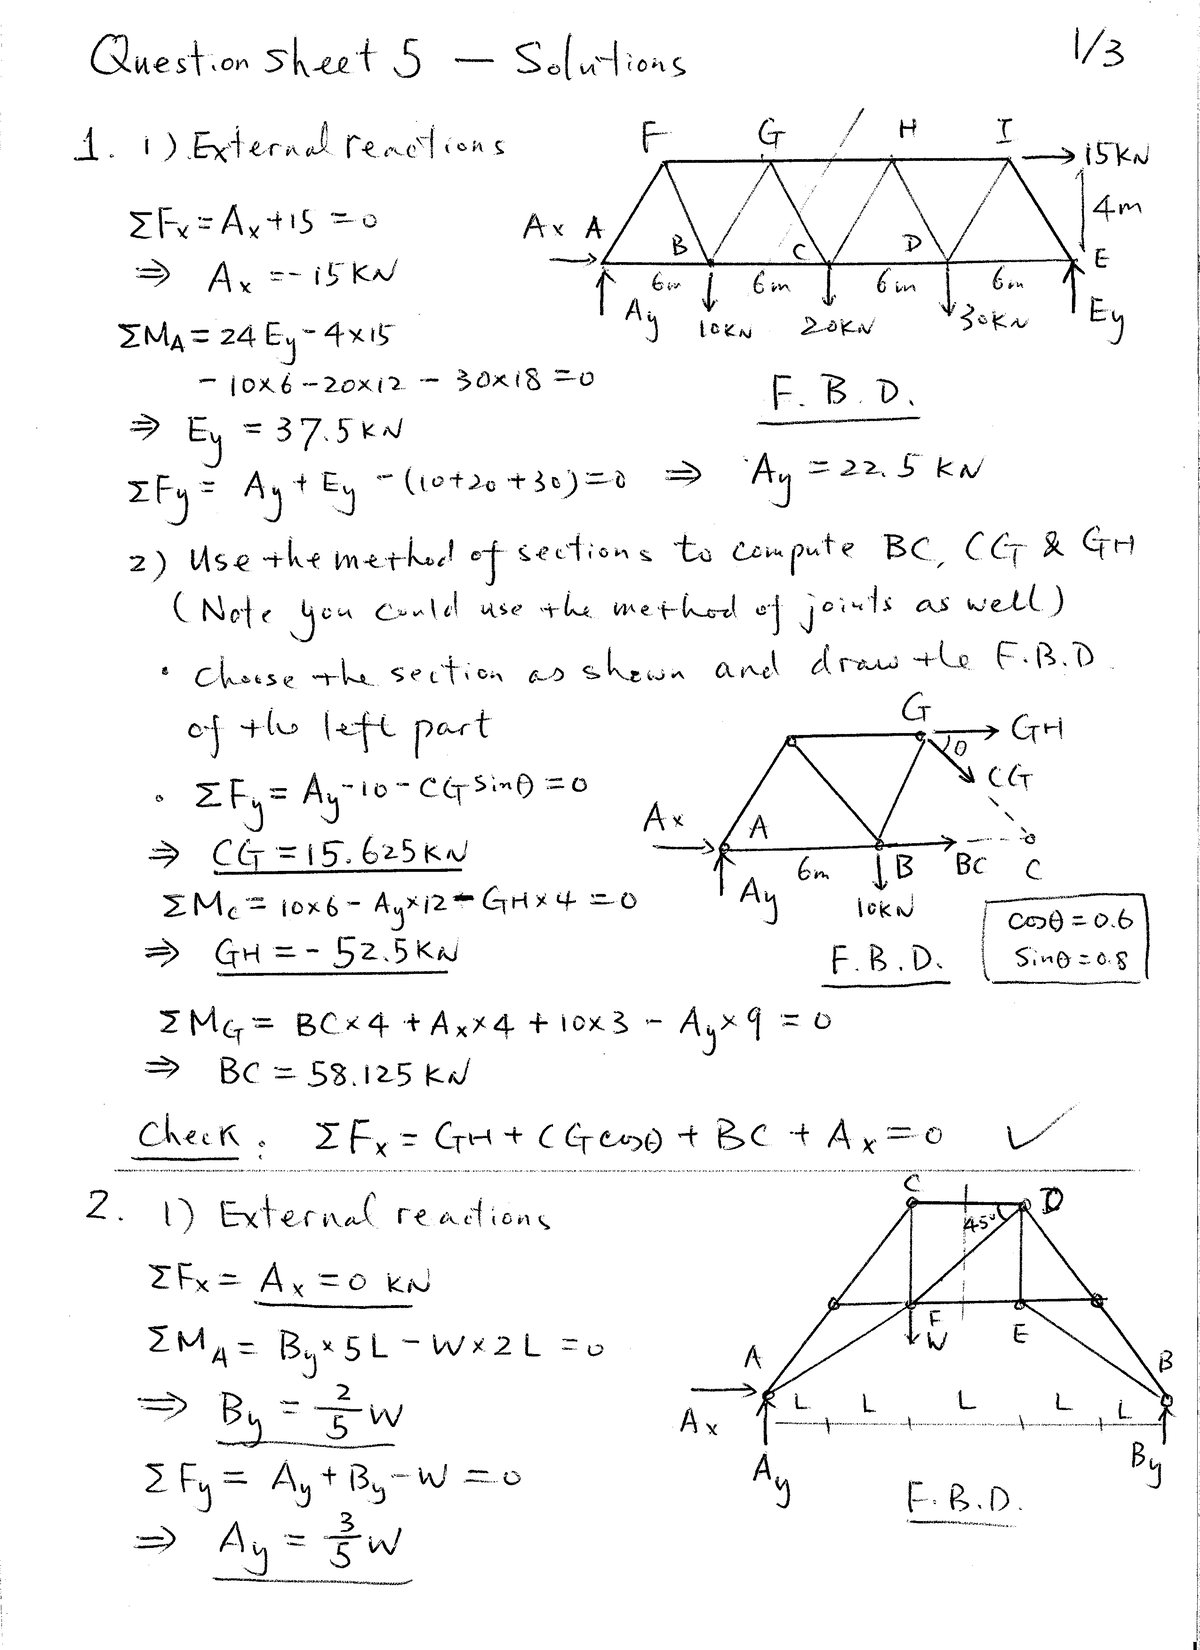 Question sheet 5 — Solutions
1/3
1. 1) External reactions
F G H I
15KN
4m
Ax A
B C D E
6m 6m 6m 6m
Ay 10KN 20KN 30KN Ey
F.B.D.
ΣFx = Ax+15 = 0
⇒ Ax = -15KN
ΣMA = 24Ey - 4×15
- 10×6 - 20×12 - 30×18 = 0
⇒ Ey = 37.5KN
ΣFy = Ay + Ey - (10+20+30)=0 ⇒ Ay = 22.5 KN
2) Use the method of sections to compute BC, CG & GH
(Note you could use the method of joints as well)
• Choose the section as shown and draw the F.B.D.
of the left part
• ΣFy = Ay-10-CGSinθ = 0
⇒ CG = 15.625KN
ΣMc = 10×6 - Ay×12 - GH×4 = 0
⇒ GH = -52.5KN
G GH
θ
CG
Ax A
6m B BC C
Ay 10KN
F.B.D.
cosθ = 0.6
Sinθ = 0.8
ΣMG = BC×4 + Ax×4 + 10×3 - Ay×9 = 0
⇒ BC = 58.125 KN
Check: ΣFx = GH + CGcosθ + BC + Ax = 0 ✓
2. 1) External reactions
ΣFx = Ax = 0 KN
ΣMA = By×5L - W×2L = 0
⇒ By = 2/5 W
ΣFy = Ay + By - W = 0
⇒ Ay = 3/5 W
C D
45°
F E
W
A B
L L L L L
Ax
Ay By
F.B.D.